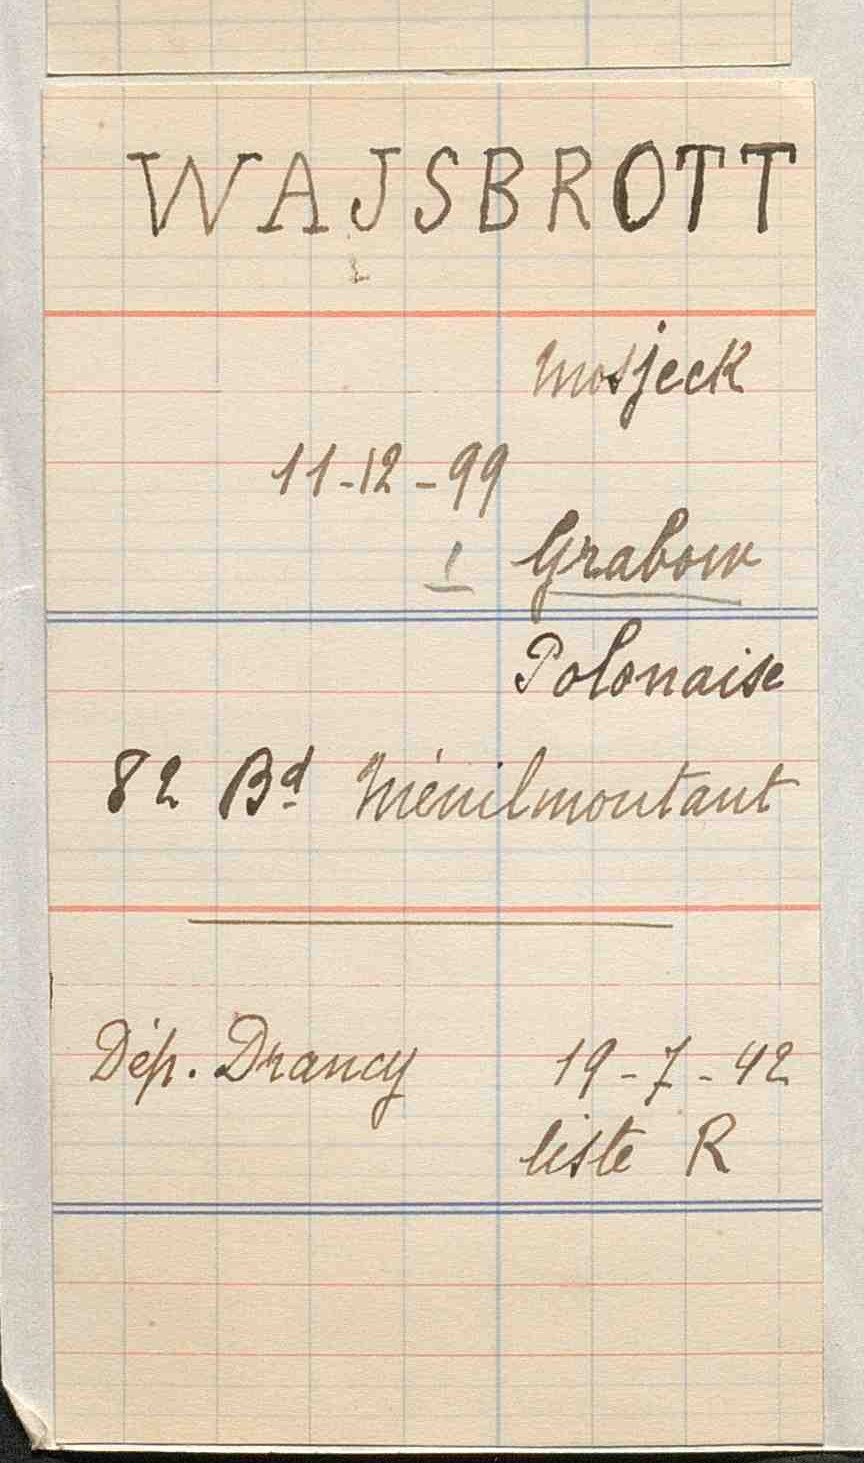 WAJSBROTT
Mosjeck
11-12-99
1 Grabow
Polonaise
82 Bd Ménilmontant
Dép. Drancy 19-7-42
liste R